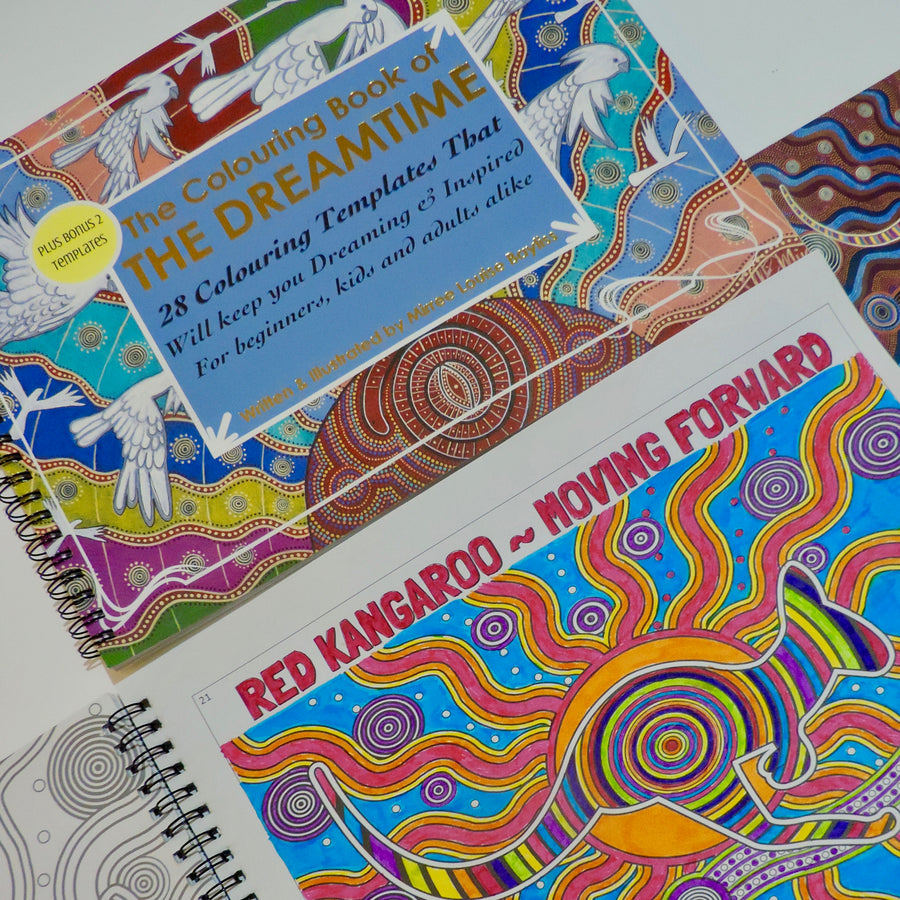 The Colouring Book of
THE DREAMTIME
28 Colouring Templates That
Will keep you Dreaming & Inspired
For beginners, kids and adults alike
Written & Illustrated by Mirree Louise Bayliss
PLUS BONUS 2
Templates
21
RED KANGAROO ~ MOVING FORWARD